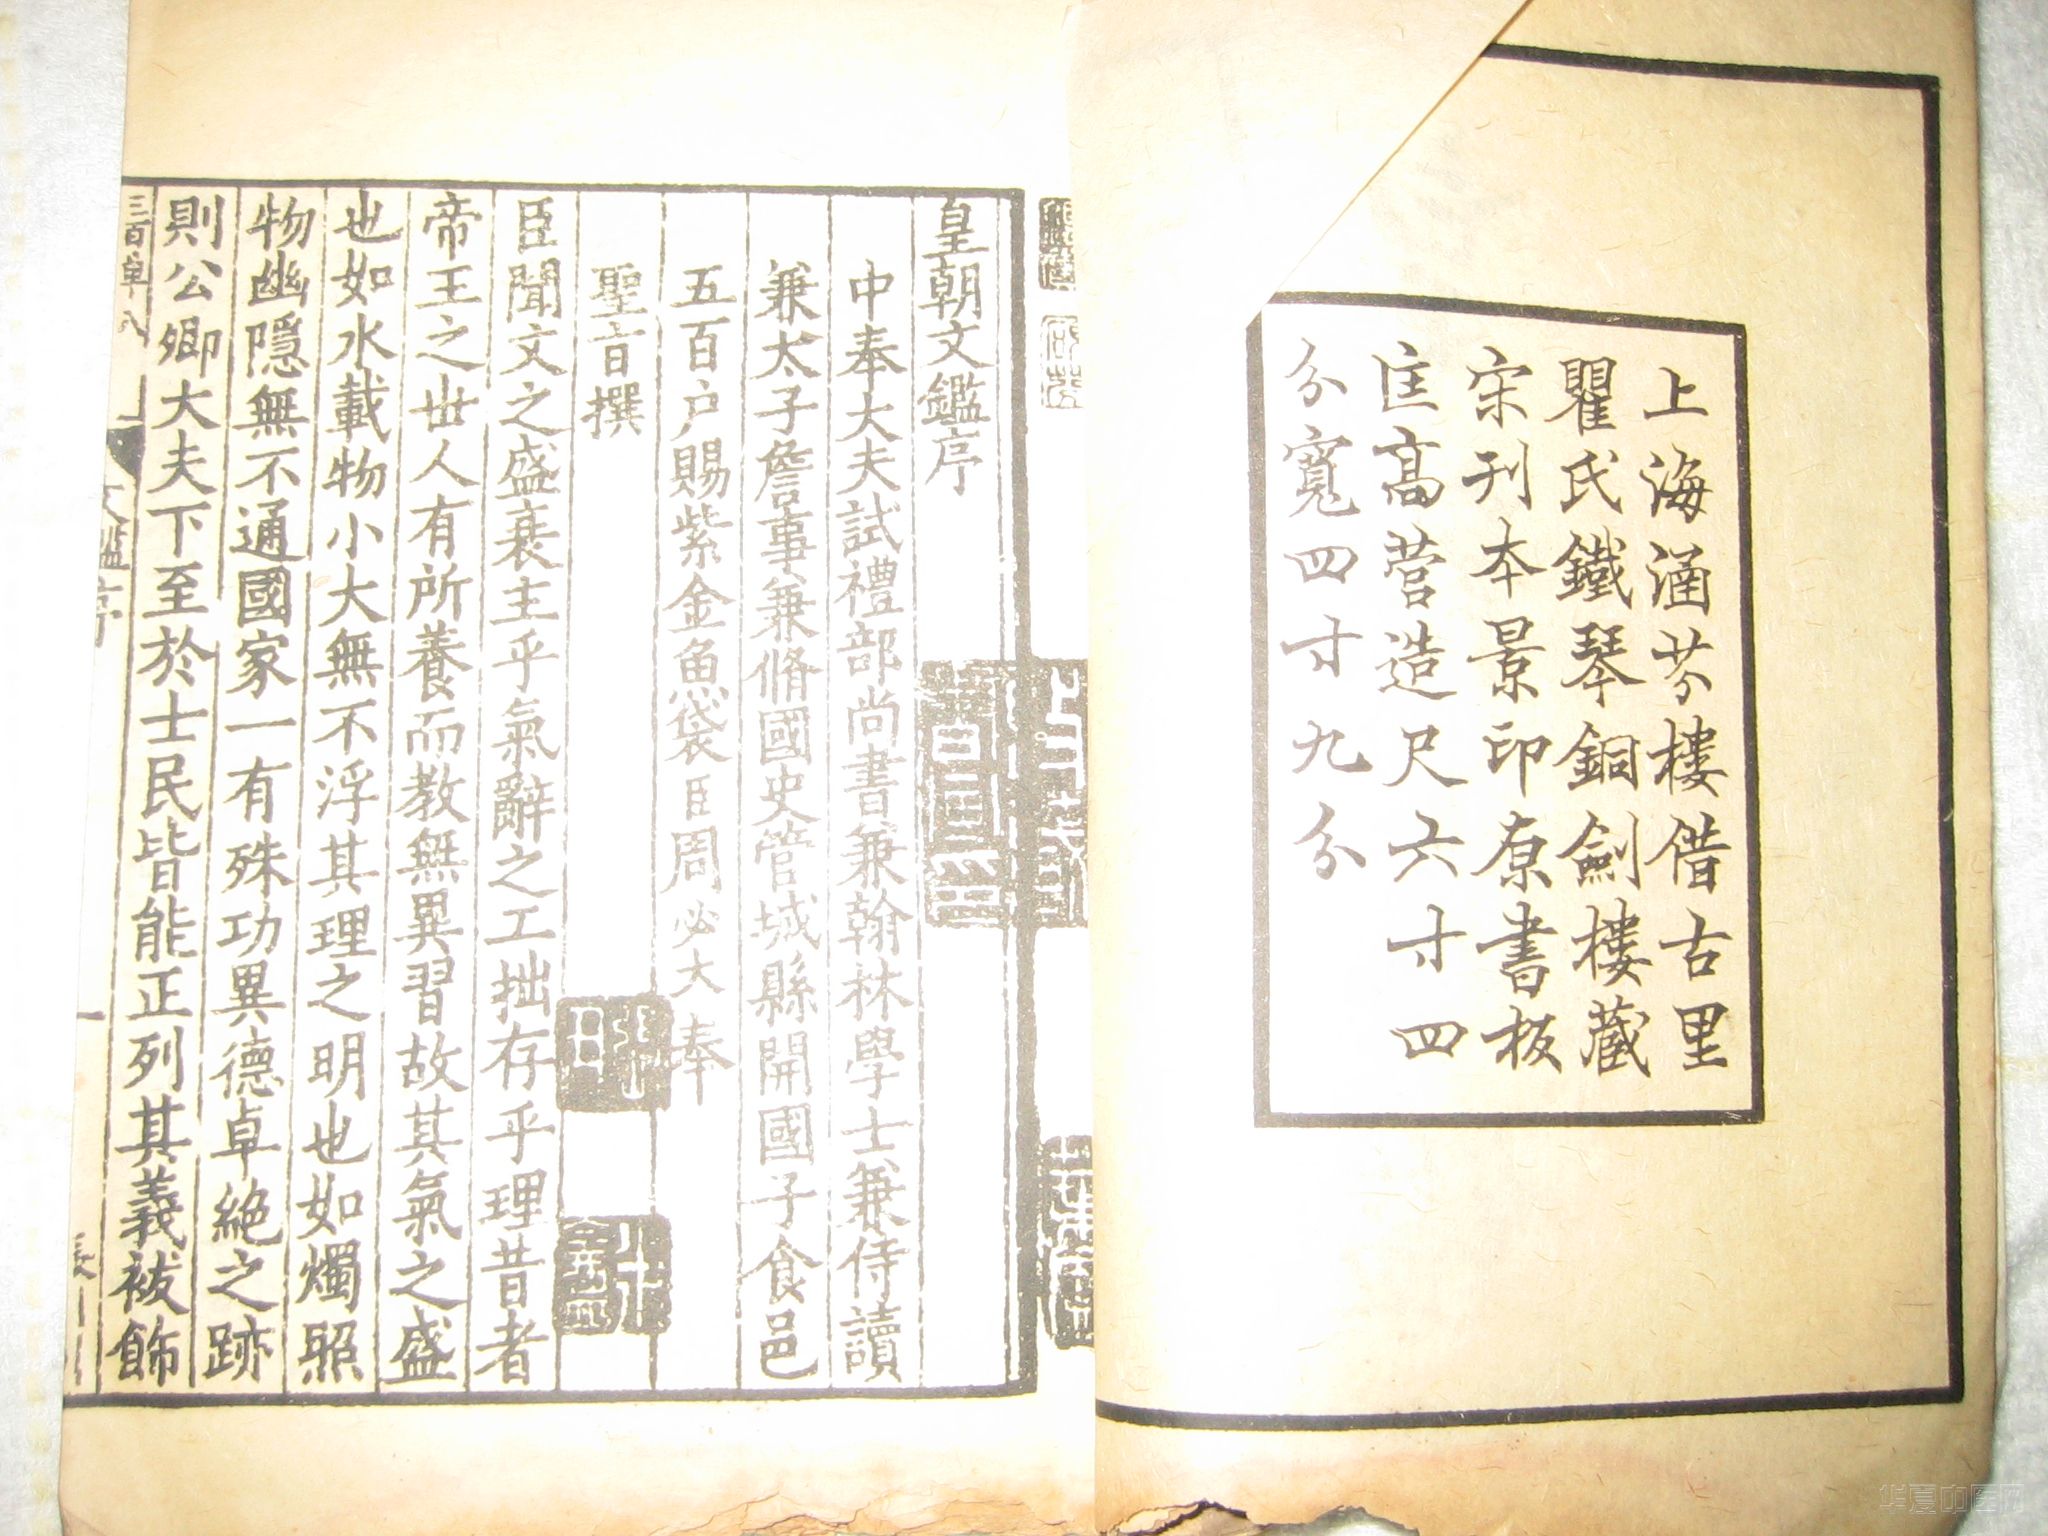 上海涵芬樓借古里
瞿氏鐵琴銅劍樓藏
宋刊本景印原書板
匡高營造尺六寸四
分寬四寸九分
皇朝文鑑序
中奉大夫試禮部尚書兼翰林學士兼侍讀
兼太子詹事兼脩國史管城縣開國子食邑
五百户賜紫金魚袋臣周必大奉
聖旨撰
臣聞文之盛衰主乎氣辭之工拙存乎理昔者
帝王之世人有所養而教無異習故其氣之盛
也如水載物小大無不浮其理之明也如燭照
物幽隱無不通國家一有殊功異德卓絶之跡
則公卿大夫下至於士民皆能正列其義袚飾
三百卓八
文鑑序
一
华夏中医网